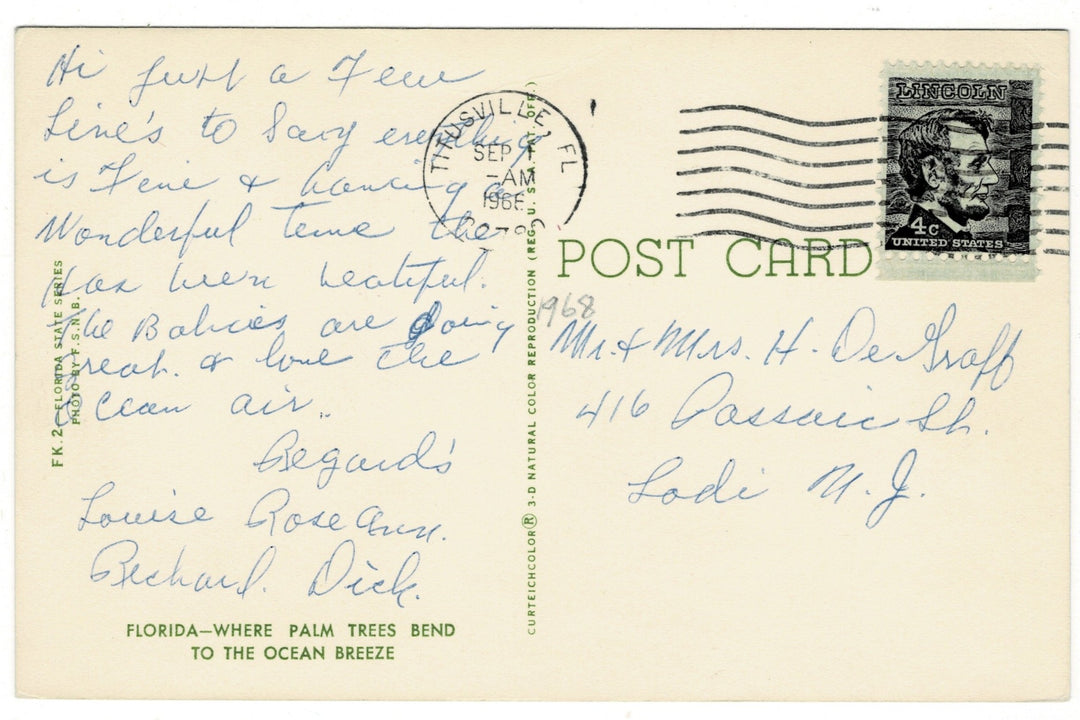 Hi Just a Few
Line's to Say everything
is Fine & haveing a
Wonderful time the
has been beatiful.
the Babies are doing
great. & love the
Ocean air..
Regards
Louise Rose Ann.
Richard. Dick.
FLORIDA—WHERE PALM TREES BEND
TO THE OCEAN BREEZE
FK.2—FLORIDA STATE SERIES
PHOTO BY F.S.N.B.
CURTEICHCOLOR® 3-D NATURAL COLOR REPRODUCTION (REG. U.S. PAT. OFF.)
TITUSVILLE, FL
SEP 1
-AM
LINCOLN
4c
UNITED STATES
POST CARD
1968
Mr. & Mrs. H. De Graff
416 Passaic St.
Lodi N.J.